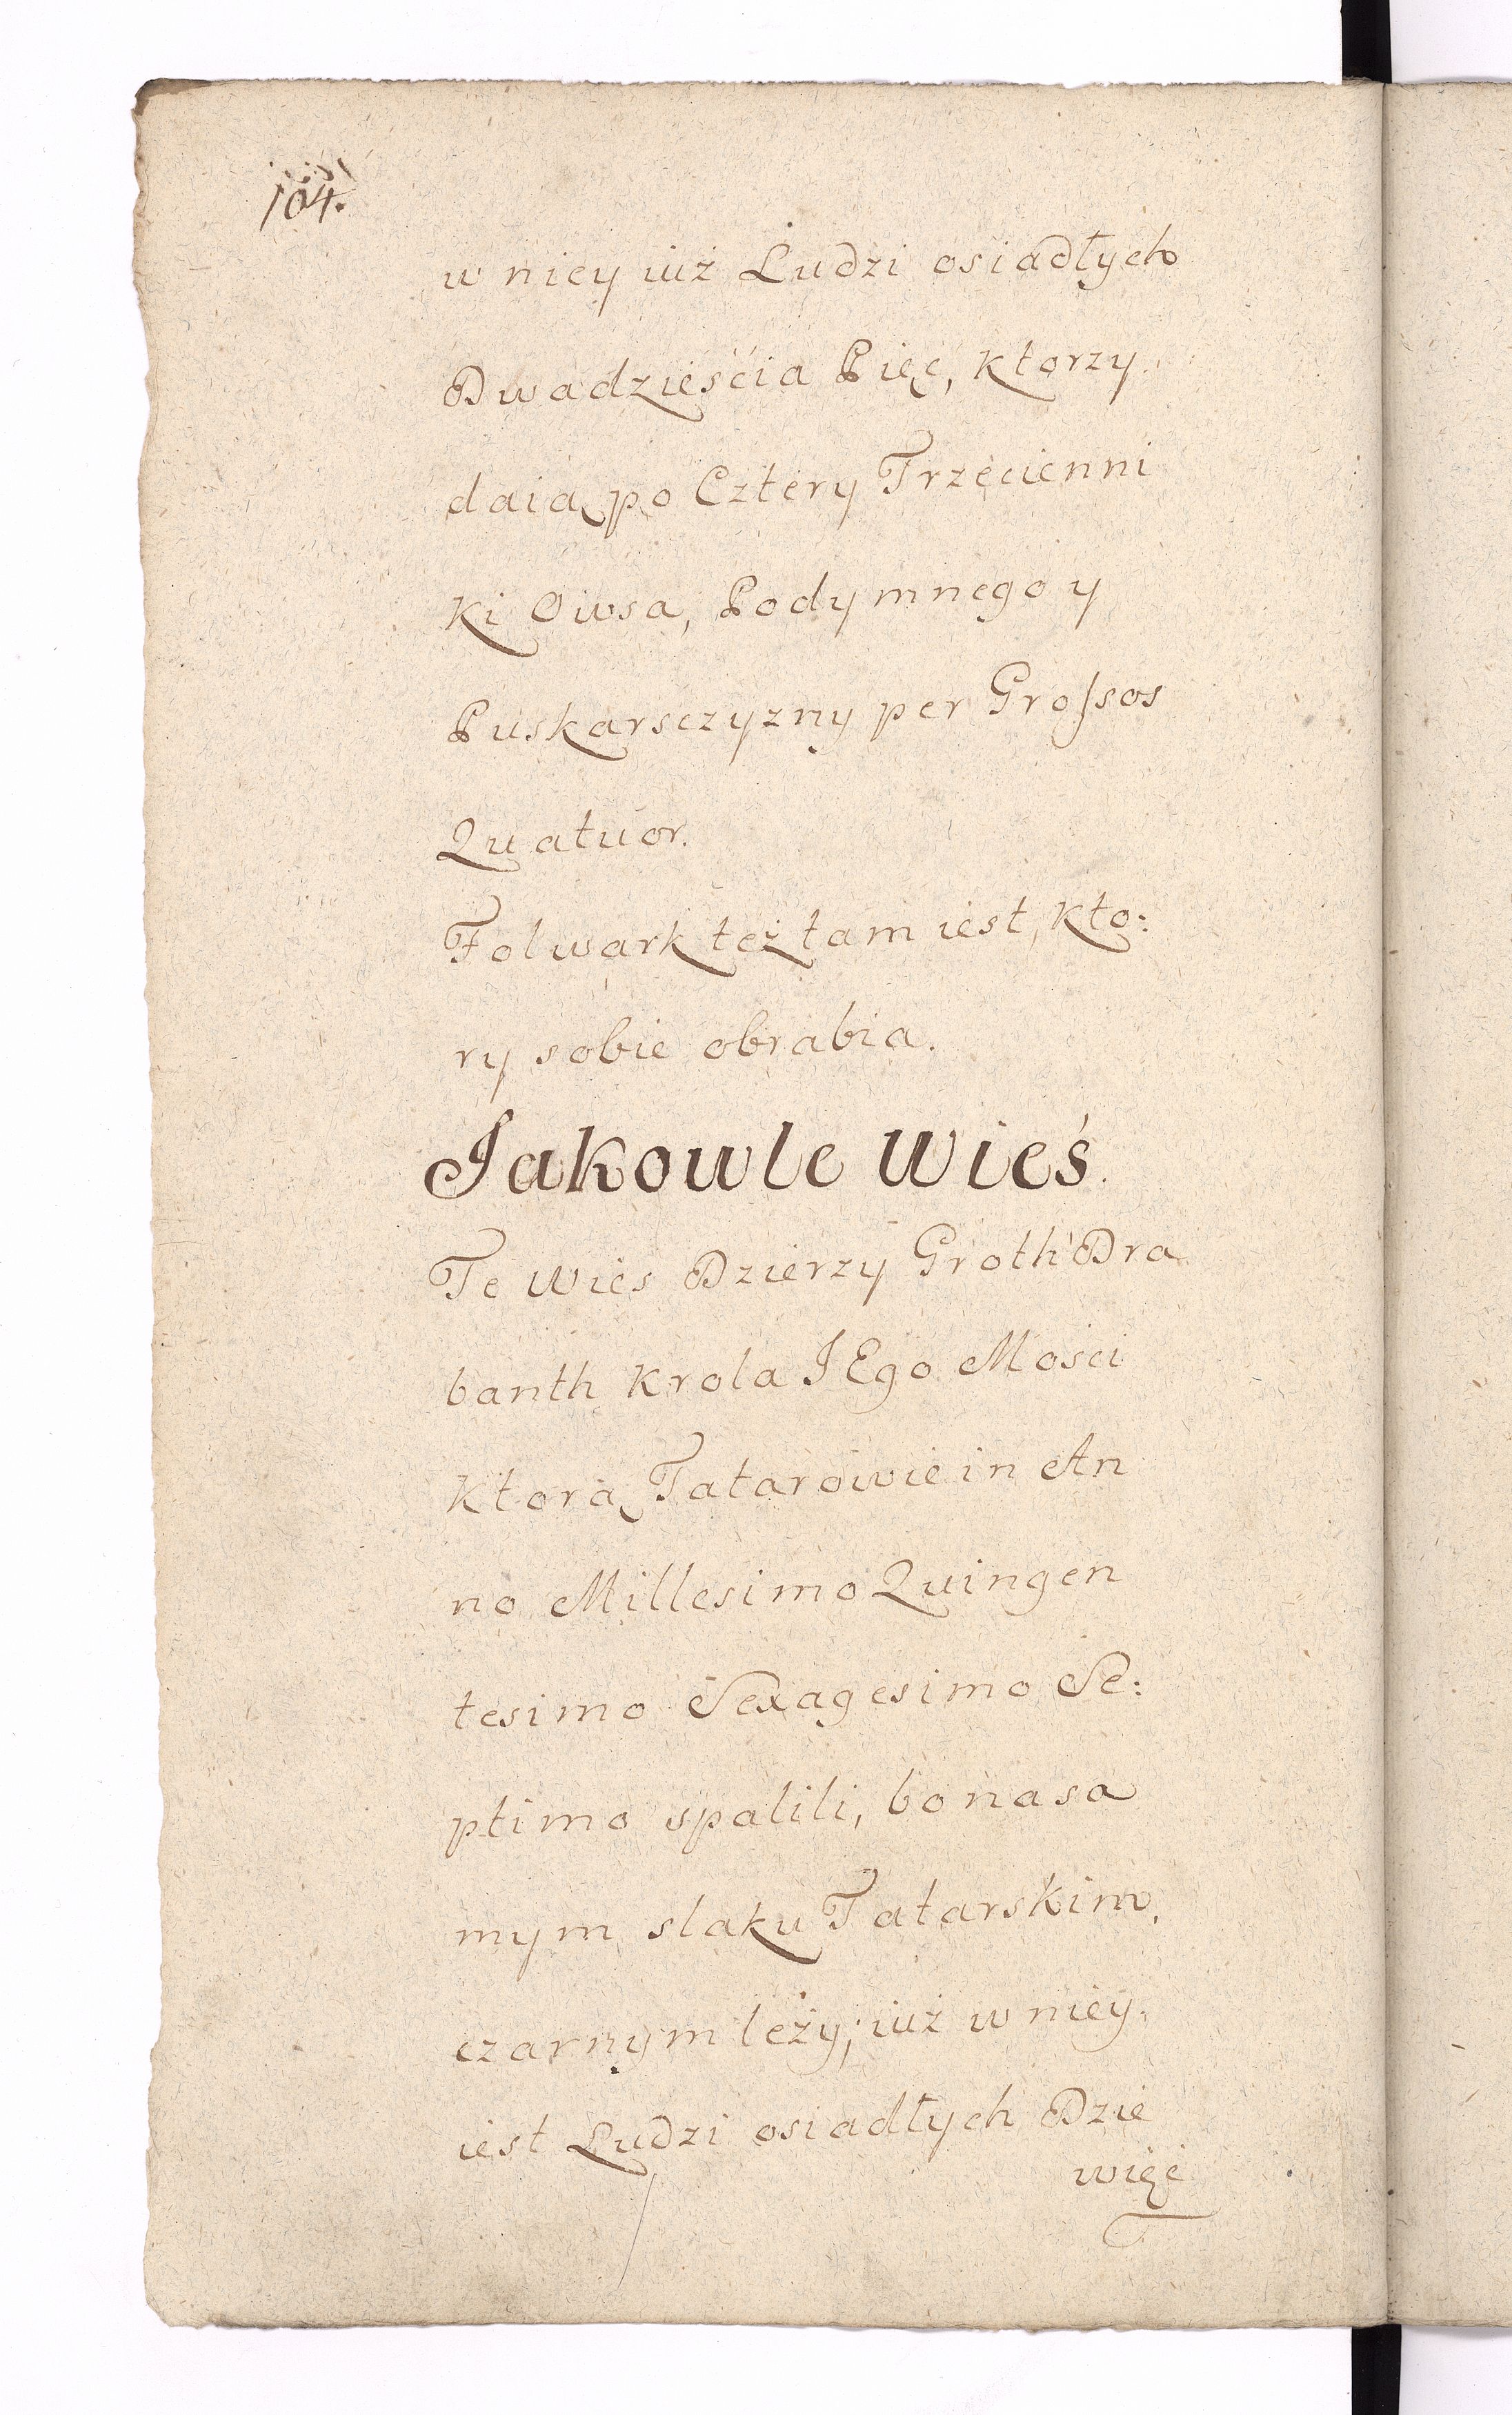 104.
w niey iuż Ludzi osiadłych
Dwadzieścia Pięć, ktorzy
daią po Cztery Trzecienni
ki Owsa, Podymnego y
Puskarsczyzny per Grossos
Quatuor.
Folwark też tam iest, kto:
ry sobie obrabia.
Jakowle Wieś.
Te Wies Dzierzy Groth Dra
banth Krola JEgo Mosci
ktorą Tatarowie in An
no Millesimo Quingen
tesimo Sexagesimo Se:
ptimo spalili, bo na sa
mym slaku Tatarskim
czarnym leży; iuż w niey
iest Ludzi osiadłych Dzie
więć